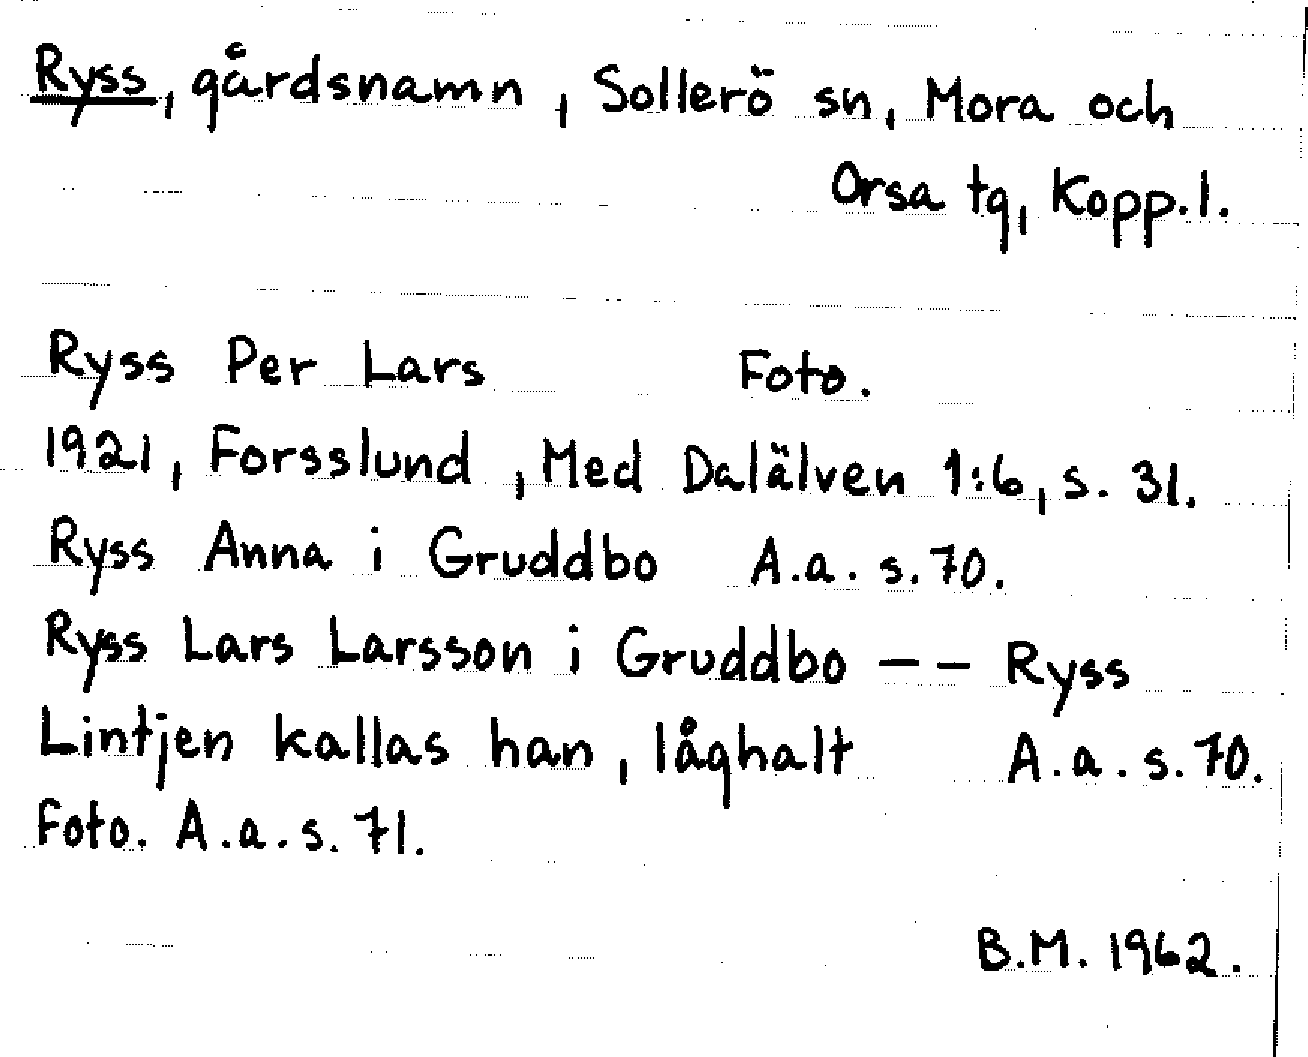 Ryss, gårdsnamn, Sollerö sn, Mora och
Orsa tg, Kopp.l.
Ryss Per Lars Foto.
1921, Forsslund, Med Dalälven 1:6, s. 31.
Ryss Anna i Gruddbo A.a. s. 70.
Ryss Lars Larsson i Gruddbo -- Ryss
Lintjen kallas han, låghalt A.a. s. 70.
Foto. A.a. s. 71.
B.M. 1962.